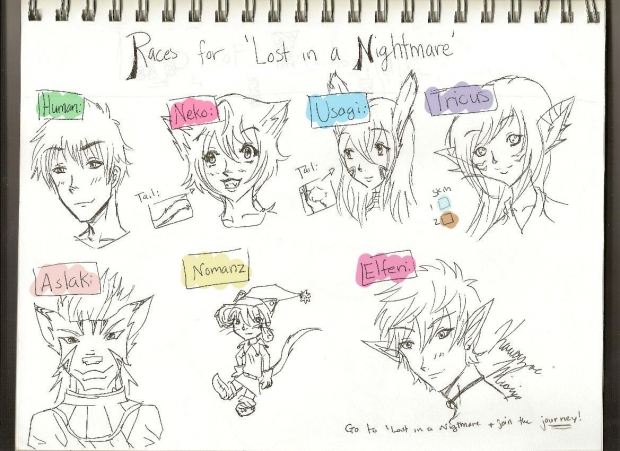 Races for 'Lost in a Nightmare'
Human:
Neko:
Usagi:
Tricus
Tail:
Tail:
Skin
1
2
Aslak:
Nomanz
Elfen:
Go to 'Lost in a Nightmare + join the journey!